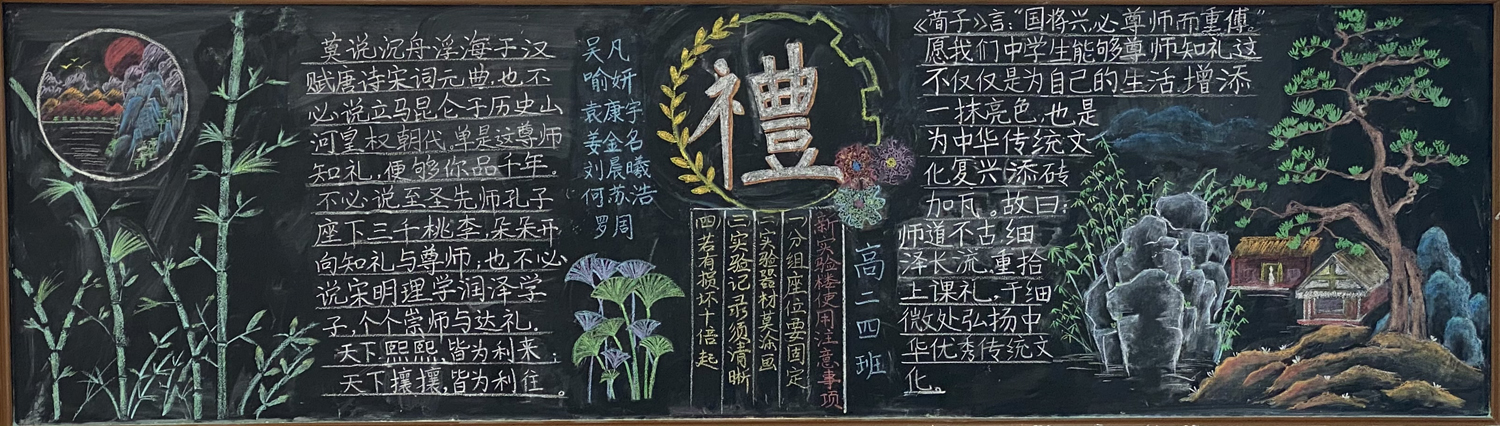 莫说沉舟浮海于汉
赋唐诗宋词元曲，也不
必说立马昆仑于历史山
河皇权朝代。单是这尊师
知礼，便够你品千年。
不必说至圣先师孔子
座下三千桃李，朵朵开
向知礼与尊师；也不必
说宋明理学润泽学
子，个个崇师与达礼。
天下熙熙，皆为利来；
天下攘攘，皆为利往。
吴凡
喻妍
袁康宇
姜金名
刘晨曦
何苏浩
罗周
禮
新实验楼使用注意事项
一分组座位要固定
二实验器材莫涂画
三实验记录须清晰
四若有损坏十倍起
高二四班
《荀子》言：“国将兴必尊师而重傅。”
愿我们中学生能够尊师知礼，这
不仅仅是为自己的生活，增添
一抹亮色，也是
为中华传统文
化复兴添砖
加瓦。故曰：
师道不古，细
泽长流，重拾
上课礼，于细
微处弘扬中
华优秀传统文
化。